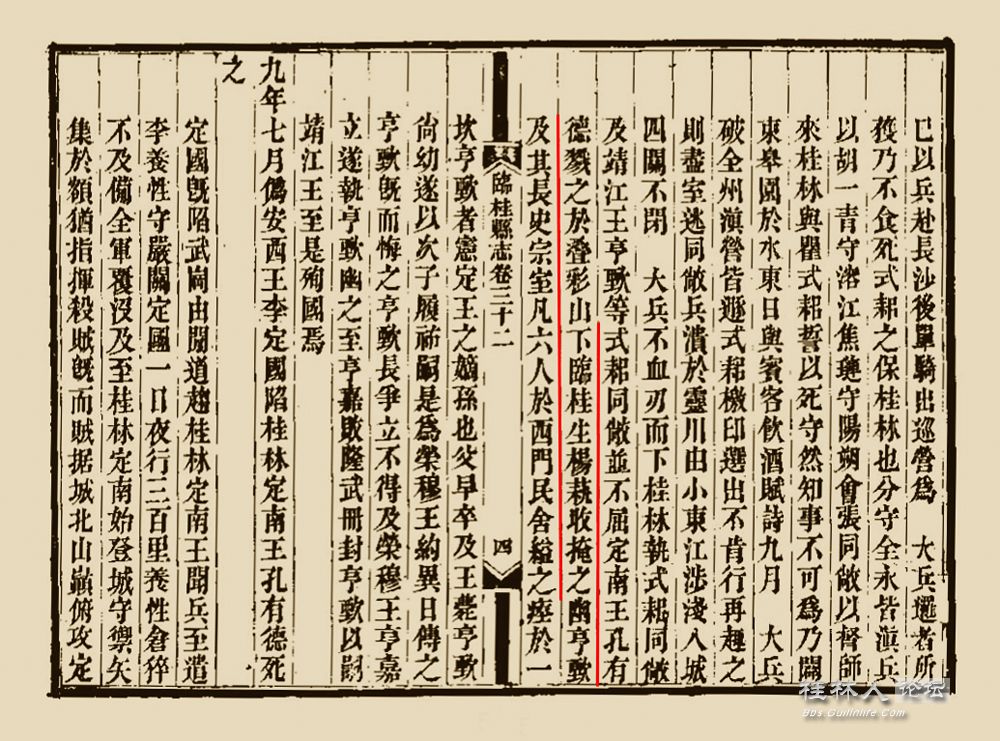 已以兵赴長沙後單騎出巡營為　大兵邏者所
獲乃不食死式耜之保桂林也分守全永皆滇兵
以胡一青守溶江焦璉守陽朔會張同敞以督師
來桂林與瞿式耜誓以死守然知事不可為乃闢
東臯園於水東日與賓客飲酒賦詩九月　大兵
破全州滇營皆遁式耜檄印選出不肯行再趣之
則盡室逃同敞兵潰於靈川由小東江涉淺入城
四關不閉　大兵不血刃而下桂林執式耜同敞
及靖江王亨歅等式耜同敞並不屈定南王孔有
德戮之於疊彩山下臨桂生楊蓺收掩之幽亨歅
及其長史宗室凡六人於西門民舍縊之瘞於一
臨桂縣志卷三十二
四
坎亨歅者憲定王之嫡孫也父早卒及王薨亨歅
尙幼遂以次子履祐嗣是為榮穆王約異日傳之
亨歅旣而悔之亨歅長爭立不得及榮穆王亨嘉
立遂執亨歅幽之至亨嘉敗隆武冊封亨歅以嗣
靖江王至是殉國焉
九年七月僞安西王李定國陷桂林定南王孔有德死
之
定國旣陷武岡由閒道趨桂林定南王聞兵至遣
李養性守嚴關定國一日夜行三百里養性倉猝
不及備全軍覆沒及至桂林定南始登城守禦矢
集於額猶指揮殺賊旣而賊据城北山巔俯攻定
桂林人论坛
Bbs.Guilinlife.Com